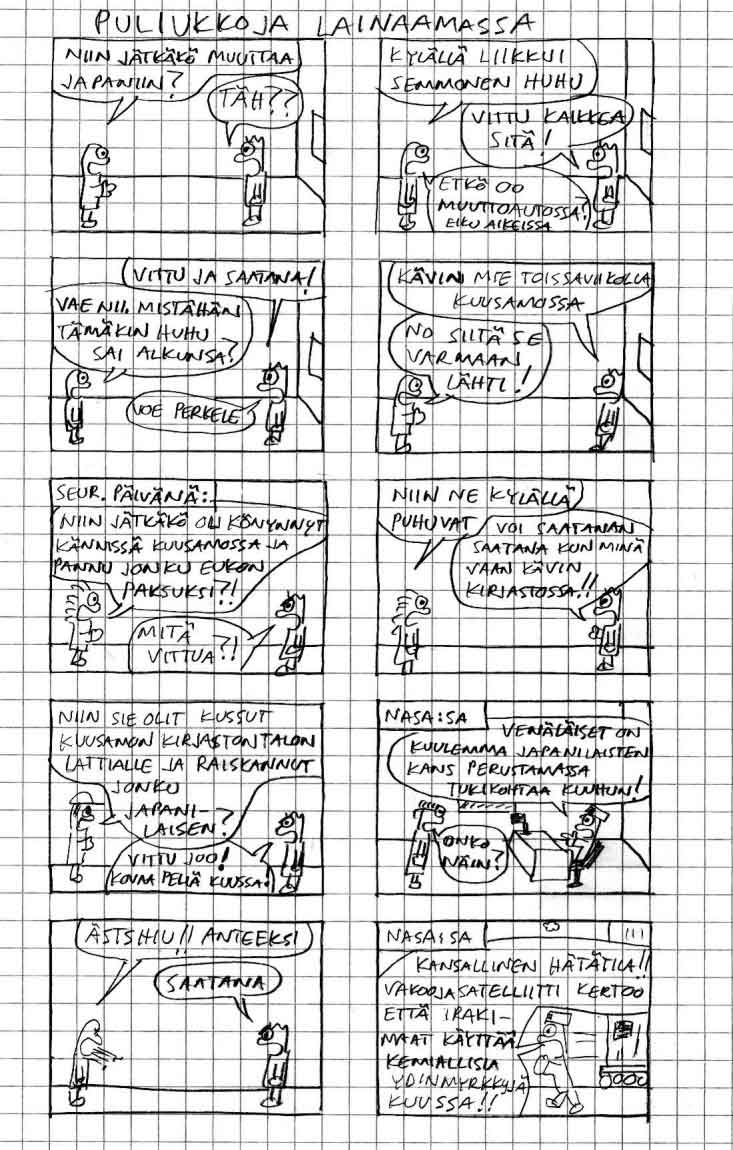 PULIUKKOJA LAINAAMASSA
NIIN JÄTKÄKÖ MUUTTAA
JAPANIIN?
TÄH??
KYLÄLLÄ LIIKKUI
SEMMONEN HUHU
VITTU KAIKKEA
SITÄ!
ETKÖ OO
MUUTTOAUTOSSA?
EIKU AIKEISSA
VITTU JA SAATANA!
VAE NII. MISTÄHÄN
TÄMÄKIN HUHU
SAI ALKUNSA?
VOE PERKELE
KÄVIN MIE TOISSAVIIKOLLA
KUUSAMOSSA
NO SIITÄ SE
VARMAAN
LÄHTI!
SEUR. PÄIVÄNÄ:
NIIN JÄTKÄKÖ OLI KÖNYNNYT
KÄNNISSÄ KUUSAMOSSA JA
PANNU JONKU EUKON
PAKSUKSI?!
MITÄ
VITTUA?!
NIIN NE KYLÄLLÄ
PUHUVAT
VOI SAATANAN
SAATANA KUN MINÄ
VAAN KÄVIN
KIRJASTOSSA!!
NIIN SIE OLIT KUSSUT
KUUSAMON KIRJASTONTALON
LATTIALLE JA RAISKANNUT
JONKU
JAPANI-
LAISEN?
VITTU JOO!
KOVAA PELIÄ KUUSSA!
NASA:SA
VENÄLÄISET ON
KUULEMMA JAPANILAISTEN
KANS PERUSTAMASSA
TUKIKOHTAA KUUHUN!
ONKO
NÄIN?
ÄSTSHIU!! ANTEEKSI
SAATANA
NASA:SA
KANSALLINEN HÄTÄTILA!!
VAKOOJASATELLIITTI KERTOO
ETTÄ IRAKI-
MAAT KÄYTTÄÄ
KEMIALLISIA
YDINMYRKKYJÄ
KUUSSA!!